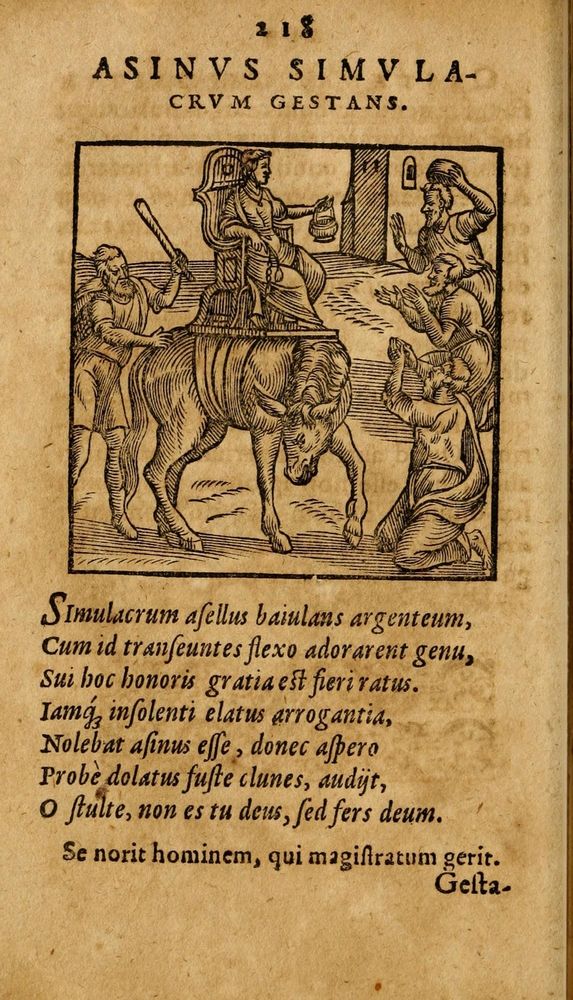 218
ASINVS SIMVLA-
CRVM GESTANS.
SImulacrum aſellus baiulans argenteum,
Cum id tranſeuntes flexo adorarent genu,
Sui hoc honoris gratia eſt fieri ratus.
Iamq́ꝫ inſolenti elatus arrogantia,
Nolebat aſinus eſſe, donec aſpero
Probè dolatus fuſte clunes, audijt,
O ſtulte, non es tu deus, ſed fers deum.
Se norit hominem, qui magiſtratum gerit.
Geſta-